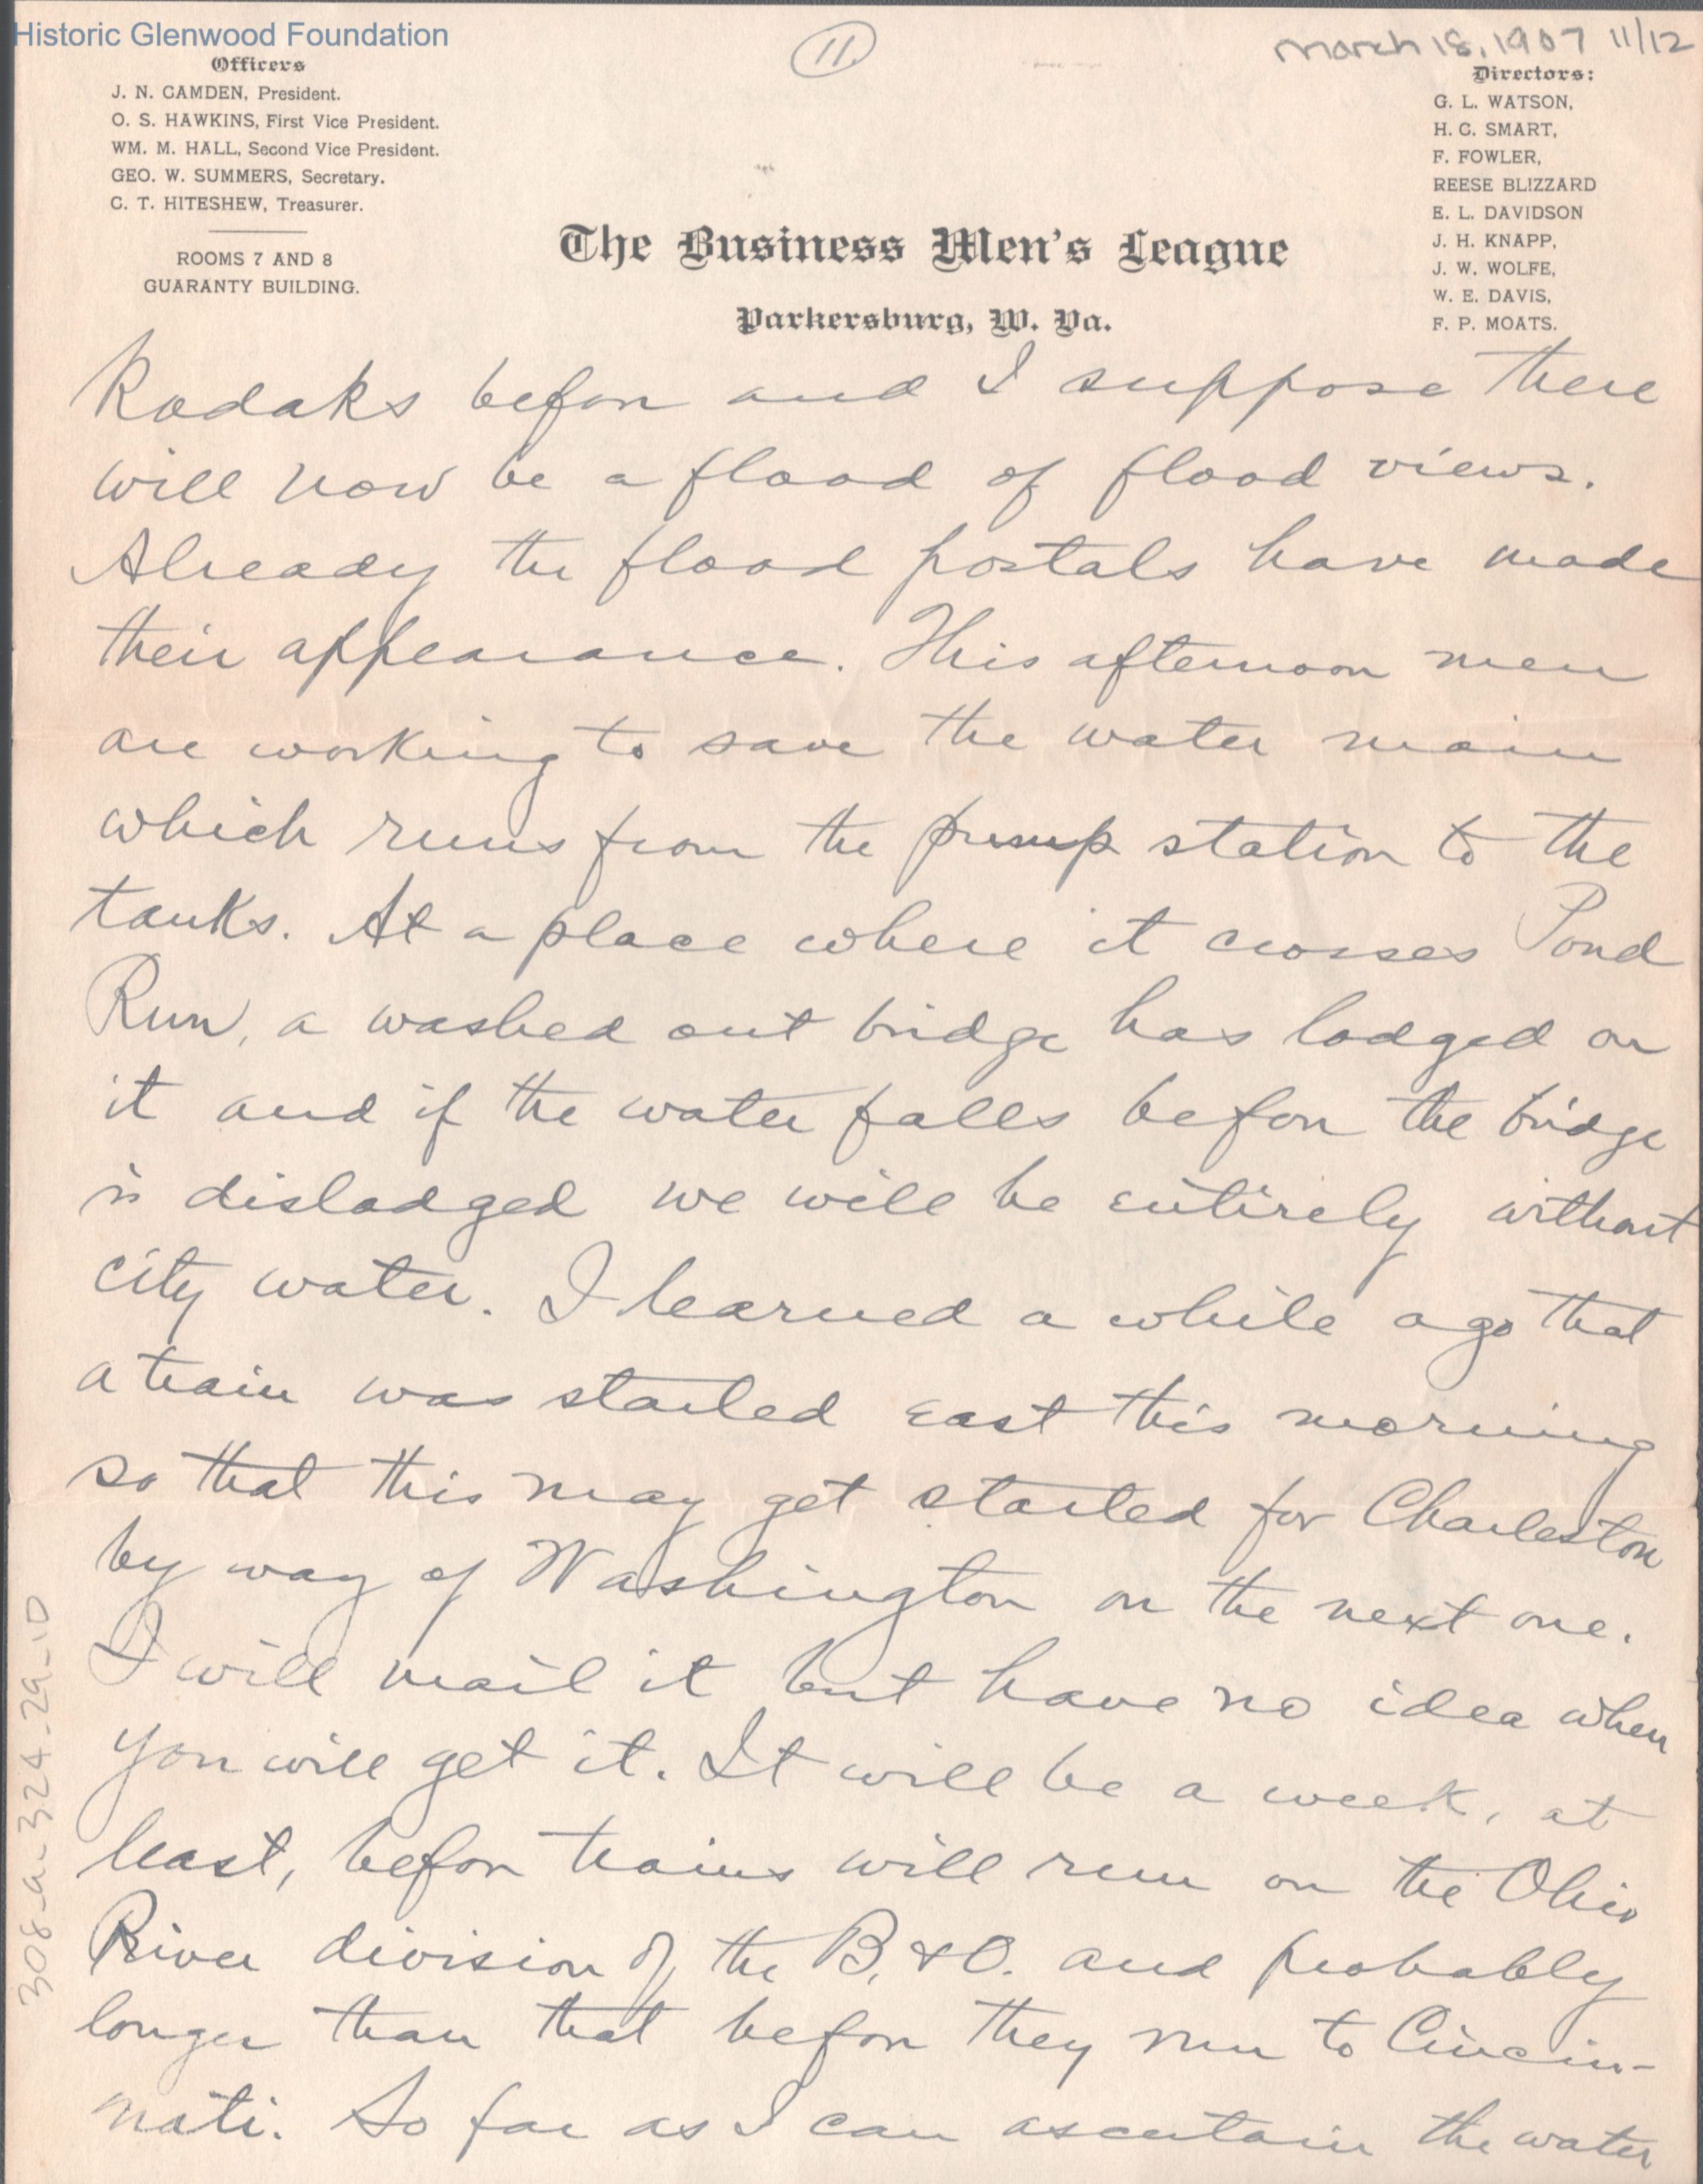 Historic Glenwood Foundation
11
March 18, 1907 11/12
Officers
J. N. CAMDEN, President.
O. S. HAWKINS, First Vice President.
WM. M. HALL, Second Vice President.
GEO. W. SUMMERS, Secretary.
C. T. HITESHEW, Treasurer.
ROOMS 7 AND 8
GUARANTY BUILDING.
Directors:
G. L. WATSON,
H. C. SMART,
F. FOWLER,
REESE BLIZZARD
E. L. DAVIDSON
J. H. KNAPP,
J. W. WOLFE,
W. E. DAVIS,
F. P. MOATS.
The Business Men's League
Parkersburg, W. Va.
Kodaks before and I suppose there
will now be a flood of flood views.
Already the flood postals have made
their appearance. This afternoon men
are working to save the water main
which runs from the pump station to the
tanks. At a place where it crosses Pond
Run, a washed out bridge has lodged on
it and if the water falls before the bridge
is dislodged we will be entirely without
city water. I learned a while ago that
a train was started east this morning
so that this may get started for Charleston
by way of Washington on the next one.
I will mail it but have no idea when
you will get it. It will be a week, at
least, before trains will run on the Ohio
River division of the B. & O. and probably
longer than that before they run to Cincin-
nati. So far as I can ascertain the water
308-a-324-29-10